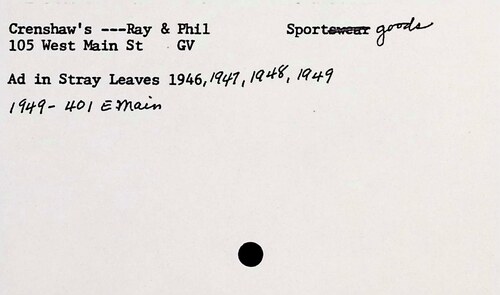 Crenshaw's ---Ray & Phil Sportswear goods
105 West Main St GV
Ad in Stray Leaves 1946, 1947, 1948, 1949
1949- 401 E Main